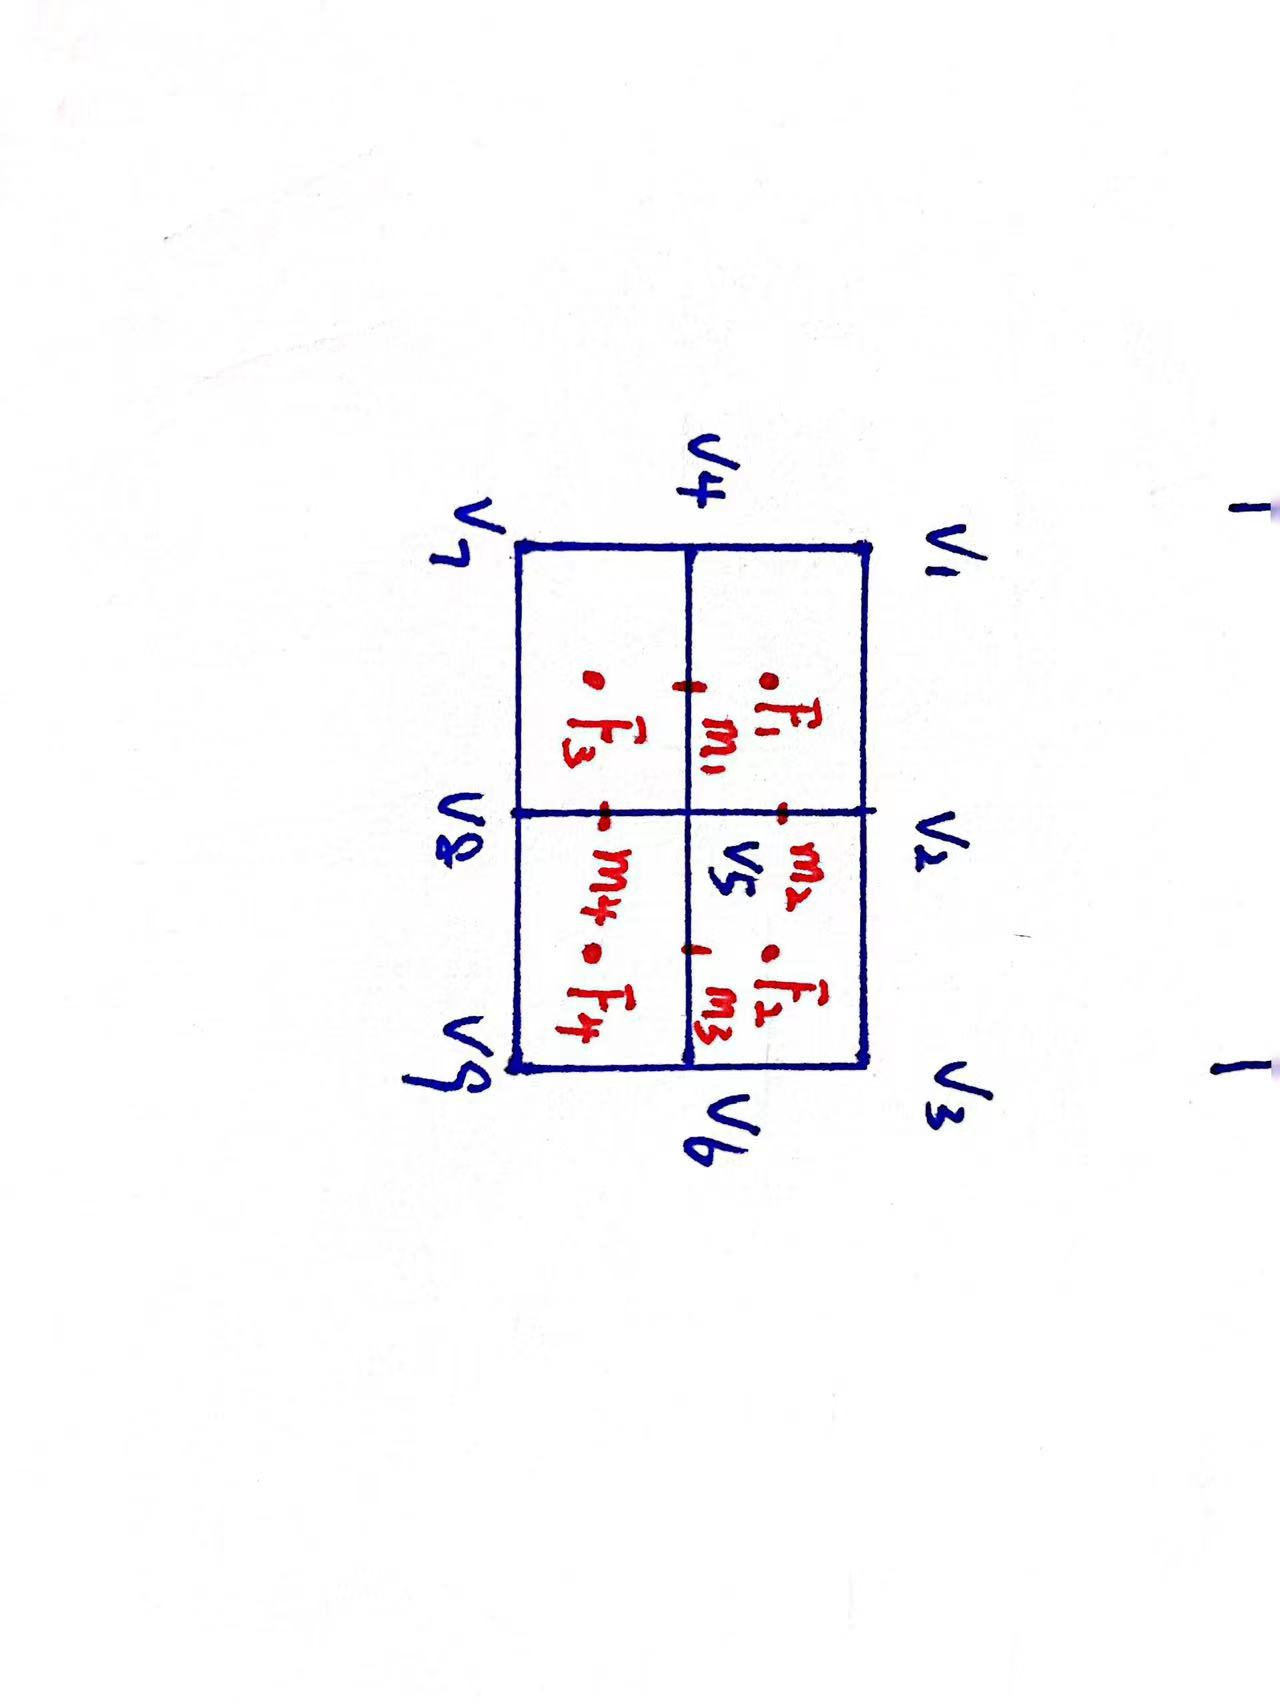 V1 V2 V3
F1 m2 F2
V4 m1 V5 m3 V6
F3 m4 F4
V7 V8 V9